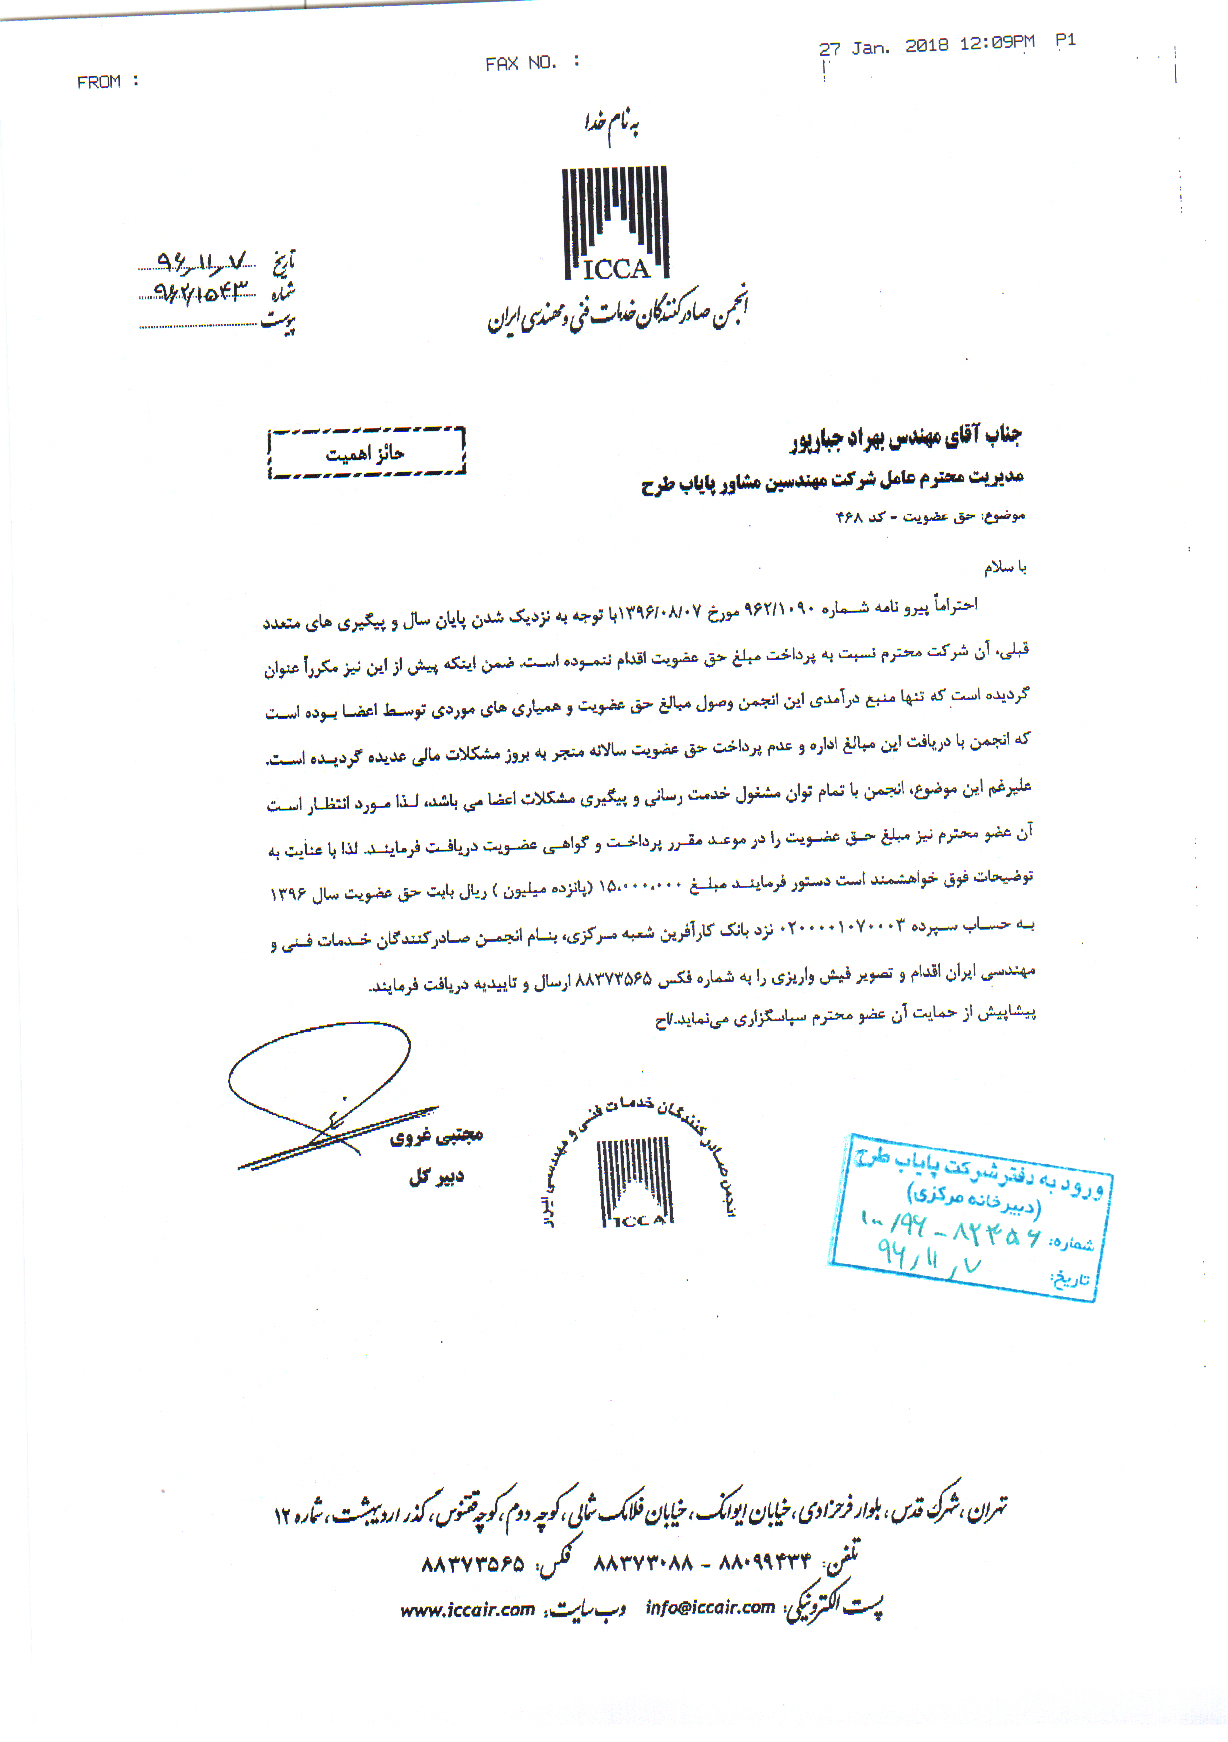 27 Jan. 2018 12:09PM P1
FAX NO. :
FROM :
به نام خدا
ICCA
انجمن صادرکنندگان خدمات فنی و مهندسی ایران
تاریخ ۹۶٫۱۱٫۷
شماره ۹۶۲/۱۵۴۳
پیوست
حائز اهمیت
جناب آقای مهندس بهراد جبارپور
مدیریت محترم عامل شرکت مهندسین مشاور پایاب طرح
موضوع: حق عضویت - کد ۴۶۸
با سلام
احتراماً پیرو نامه شماره ۹۶۲/۱۰۹۰ مورخ ۱۳۹۶/۰۸/۰۷با توجه به نزدیک شدن پایان سال و پیگیری های متعدد
قبلی، آن شرکت محترم نسبت به پرداخت مبلغ حق عضویت اقدام ننموده است. ضمن اینکه پیش از این نیز مکرراً عنوان
گردیده است که تنها منبع درآمدی این انجمن وصول مبالغ حق عضویت و همیاری های موردی توسط اعضا بوده است
که انجمن با دریافت این مبالغ اداره و عدم پرداخت حق عضویت سالانه منجر به بروز مشکلات مالی عدیده گردیده است.
علیرغم این موضوع، انجمن با تمام توان مشغول خدمت رسانی و پیگیری مشکلات اعضا می باشد، لذا مورد انتظار است
آن عضو محترم نیز مبلغ حق عضویت را در موعد مقرر پرداخت و گواهی عضویت دریافت فرمایند. لذا با عنایت به
توضیحات فوق خواهشمند است دستور فرمایند مبلغ ۱۵,۰۰۰,۰۰۰ (پانزده میلیون ) ریال بابت حق عضویت سال ۱۳۹۶
به حساب سپرده ۰۲۰۰۰۰۱۰۷۰۰۰۳ نزد بانک کارآفرین شعبه مرکزی، بنام انجمن صادرکنندگان خدمات فنی و
مهندسی ایران اقدام و تصویر فیش واریزی را به شماره فکس ۸۸۳۷۳۵۶۵ ارسال و تاییدیه دریافت فرمایند.
پیشاپیش از حمایت آن عضو محترم سپاسگزاری می‌نماید./ح
مجتبی غروی
دبیر کل
انجمن صادرکنندگان خدمات فنی و مهندسی ایران
ICCA
ورود به دفتر شرکت پایاب طرح
(دبیرخانه مرکزی)
شماره: ۱۰۰/۹۶ - ۸۲۴۵۶
تاریخ: ۹۶٫۱۱٫۷
تهران، شهرک قدس، بلوار فرحزادی، خیابان ایوانک، خیابان فلامک شمالی، کوچه دوم، کوچه ققنوس، گذر اردیبهشت، شماره ۱۲
تلفن: ۸۸۰۹۹۴۳۴ - ۸۸۳۷۳۰۸۸ فکس: ۸۸۳۷۳۵۶۵
پست الکترونیکی: info@iccair.com وب سایت: www.iccair.com